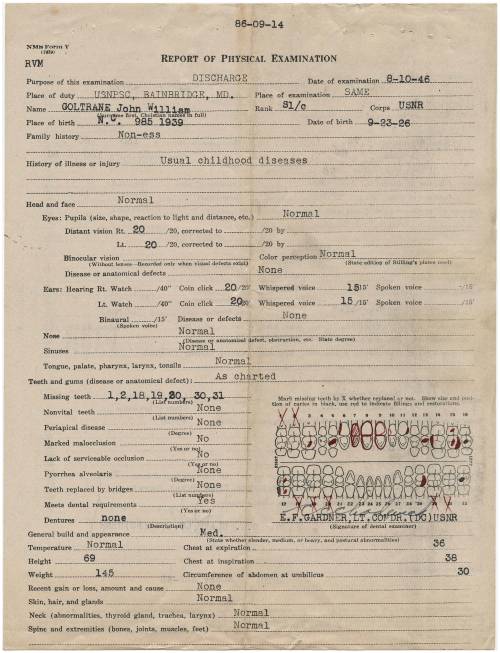 86-09-14
NMS Form Y
RVM
REPORT OF PHYSICAL EXAMINATION
Purpose of this examination DISCHARGE Date of examination 8-10-46
Place of duty USNPSC, BAINBRIDGE, MD. Place of examination SAME
Name GOLTRANE John William Rank S1/c Corps USNR
(Surname first, Christian names in full)
Place of birth N.C. 985 1939 Date of birth 9-23-26
Family history Non-ess
History of illness or injury Usual childhood diseases
Head and face Normal
Eyes: Pupils (size, shape, reaction to light and distance, etc.) Normal
Distant vision Rt. 20 /20, corrected to /20 by
Lt. 20 /20, corrected to /20 by
Binocular vision Color perception Normal
(Without lenses—Recorded only when visual defects exist) (State edition of Stilling's plates used)
Disease or anatomical defects None
Ears: Hearing Rt. Watch /40" Coin click 20/20' Whispered voice 15 15' Spoken voice /15'
Lt. Watch /40" Coin click 20 20' Whispered voice 15 /15' Spoken voice /15'
Binaural /15' Disease or defects None
(Spoken voice)
Nose Normal
(Disease or anatomical defect, obstruction, etc. State degree)
Sinuses Normal
Tongue, palate, pharynx, larynx, tonsils Normal
Teeth and gums (disease or anatomical defect): As charted
Missing teeth 1,2,18,19,20, 30,31
(List numbers)
Nonvital teeth None
(List numbers)
Periapical disease None
(Degree)
Marked malocclusion No
(Yes or no)
Lack of serviceable occlusion No
(Yes or no)
Pyorrhea alveolaris None
(Degree)
Teeth replaced by bridges None
(List numbers)
Meets dental requirements Yes
(Yes or no)
Dentures none
(Description)
Mark missing teeth by X whether replaced or not. Show size and position of caries in black, use red to indicate fillings and restorations.
E.F.GARDNER,LT.COMDR.(DC)USNR
(Signature of dental examiner)
General build and appearance Med.
(State whether slender, medium, or heavy, and postural abnormalities)
Temperature Normal Chest at expiration 36
Height 69 Chest at inspiration 38
Weight 145 Circumference of abdomen at umbilicus 30
Recent gain or loss, amount and cause None
Skin, hair, and glands Normal
Neck (abnormalities, thyroid gland, trachea, larynx) Normal
Spine and extremities (bones, joints, muscles, feet) Normal